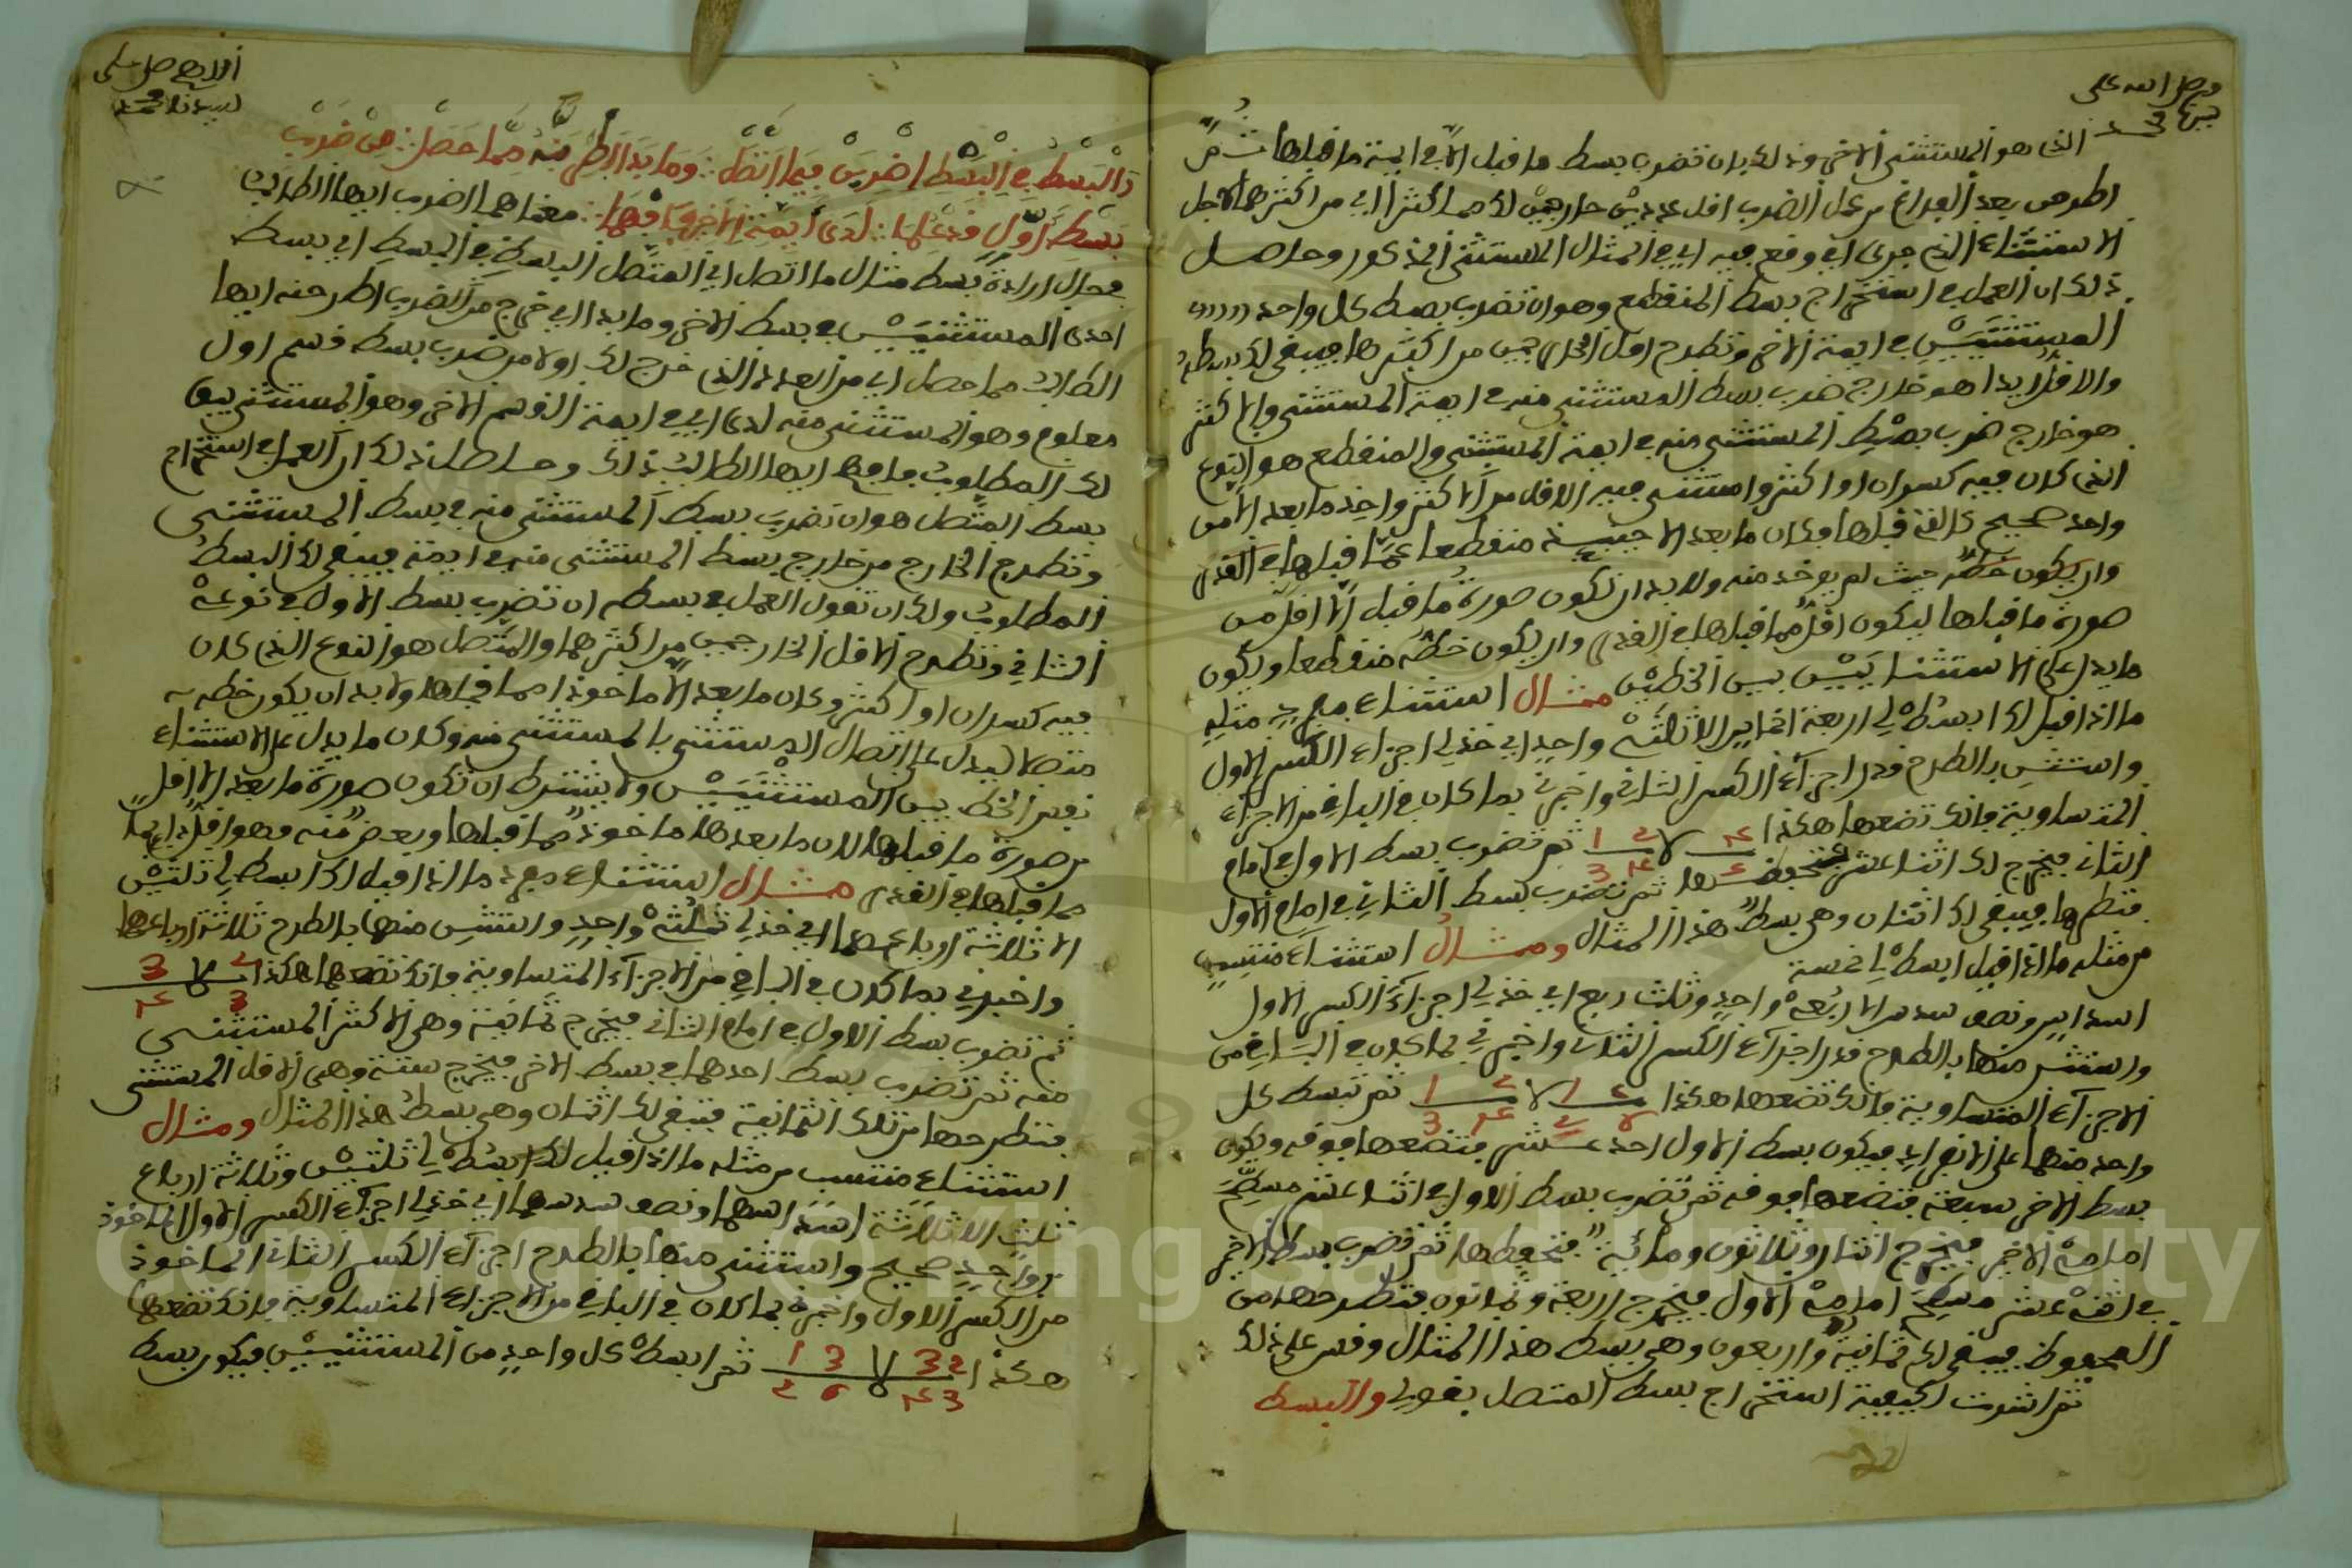 وصل الله على
الذي هو المستثنى الاخر وذلك بان تضرب بسط ما قبل الا في ايمة ما قبلها ثم
اطرحن بعد الفراغ من عمل الضرب اقل عددين خارجين لك مما كثر اي من اكثرهما لاجل
الاستثناء الذي جرى اي وقع فيه اي في المثال المستثنى المذكور وحاصل
ذلك ان العمل في استخراج بسط المنقطع وهو ان تضرب بسط كل واحد
المستثنيين في ايمة الاخر وتطرح اقل الخارجين من اكثرها فيبقى لك
والاقل ابدا هو خارج ضرب بسط المستثنى منه في ايمة المستثنى والاكثر
هو خارج ضرب بسط المستثنى منه في ايمة المستثنى والمنقطع هو النوع
الذي كان فيه كسران او اكثر واستثنى فيه الاقل من الاكثر واخذ ما بعد الا من
واحد صحيح كالذي قبلها وكان ما بعد الا حينئذ منقطعا عما قبلها في القدر
وان يكون خطه حيث لم يوخذ منه ولا بد ان تكون صورة ما قبل الا اقل من
صورة ما قبلها ليكون اقل مما قبلها في القدر وان يكون خطه منقطعا ويكون
ما يدل على الاستثنا بين الخطين مثال استثناء مفرد من مثله
ما اذا قيل لك ابسط لي اربعة اخماس الا ثلثي واحد اي خذ لي اجزاء الكسر الاول
واستثن بالطرح قدر اجزاء الكسر الثاني واخبرني بما كان في الباقي من الاجزاء
المتساوية فانك تضعها هكذا ثم تضرب بسط الاول في امام
الثاني فيخرج لك اثنا عشر تحفظها ثم تضرب بسط الثاني في امام الاول
فتطرحها فيبقى لك اثنان وهي بسط هذا المثال ومثال استثناء منتسب
من مثله ما اذا قيل ابسط لي خمسة
اسداس ونصف سدس الا ربعي واحد وثلث ربع اي خذ لي اجزاء الكسر الاول
واستثن منها بالطرح قدر اجزاء الكسر الثاني واخبرني بما كان في الباقي من
الاجزاء المتساوية فانك تضعها هكذا ثم تبسط كل
واحد منهما على الانفراد فيكون بسط الاول احد عشر فتضعها فوقه ويكون
بسط الاخر سبعة فتضعها فوقه ثم تضرب بسط الاول في اثنا عشر مسطح
امامي الاخر فيخرج اثنان وثلاثون ومائة فتحفظها ثم تضرب بسط الاخر
في اثني عشر مسطح امامي الاول فيخرج اربعة وثمانون فتطرحها من
المحفوظ فيبقى لك ثمانية واربعون وهي بسط هذا المثال وقس على ذلك
ثم اشرت لكيفية استخراج بسط المتصل بقولي والبسط
لسيدنا محمد
والبسط في البسط اضربن فيما اتصل وما بدا اطرحنه مما حصل من ضرب
بسط اول قد علما لدى ايمة الاخر فافهما معناهما اضرب ايها الطالب
في حال ارادة بسط مثال ما اتصل اي المتصل البسط في البسط اي بسط
احدى المستثنيين في بسط الاخر وما بدا اي خرج من الضرب اطرحنه ايها
الطالب مما حصل اي من العدد الذي خرج لك اولا من ضرب بسط قسم اول
معلوم وهو المستثنى منه لدى اي في ايمة القسم الاخر وهو المستثنى يبق
لك المطلوب فافهم ايها الطالب ذلك وحاصل ذلك ان العمل في استخراج
بسط المتصل هو ان تضرب بسط المستثنى منه في بسط المستثنى
وتطرح الخارج من خارج بسط المستثنى منه في ايمته فيبقى لك البسط
المطلوب ولك ان تقول العمل في بسطه ان تضرب بسط الاول في نوعي
الثاني وتطرح الاقل الخارجين من اكثرهما والمتصل هو النوع الذي كان
فيه كسران او اكثر وكان ما بعد الا ماخوذا مما قبلها ولا بد ان يكون خطه
متصلا ليدل على اتصال المستثنى بالمستثنى منه وكان ما يدل على الاستثناء
بين المستثنيين ولا يشترط ان تكون صورة ما بعد الا اقل
من صورة ما قبلها لان ما بعدها ماخوذ مما قبلها وبعض منه فهو اقل ابدا
مما قبلها في القدر مثال استثناء مفرد ما اذا قيل لك ابسط لي ثلثين
الا ثلاثة ارباعهما اي خذ لي ثلثي واحد واستثن منها بالطرح ثلاثة ارباعها
واخبرني بما كان في الباقي من الاجزاء المتساوية فانك تضعها هكذا
ثم تضرب بسط الاول في امام الثاني فيخرج ثمانية وهي الاكثر المستثنى
منه ثم تضرب بسط احدهما في بسط الاخر فيخرج ستة وهي الاقل المستثنى
فتطرحها من تلك الثمانية فيبقى لك اثنان وهي بسط هذا المثال ومثال
استثناء منتسب من مثله ما اذا قيل لك ابسط لي ثلثين وثلاثة ارباع
ثلث الا ثلاثة اسداسها ونصف سدسها اي خذ لي اجزاء الكسر الاول الماخوذ
واحد صحيح واستثن منها بالطرح اجزاء الكسر الثاني الماخوذ
من الكسر الاول واخبرني بما كان في الباقي من الاجزاء المتساوية فانك تضعها
هكذا ثم ابسط كل واحد من المستثنيين فيكون بسط
Copyright © King Saud University